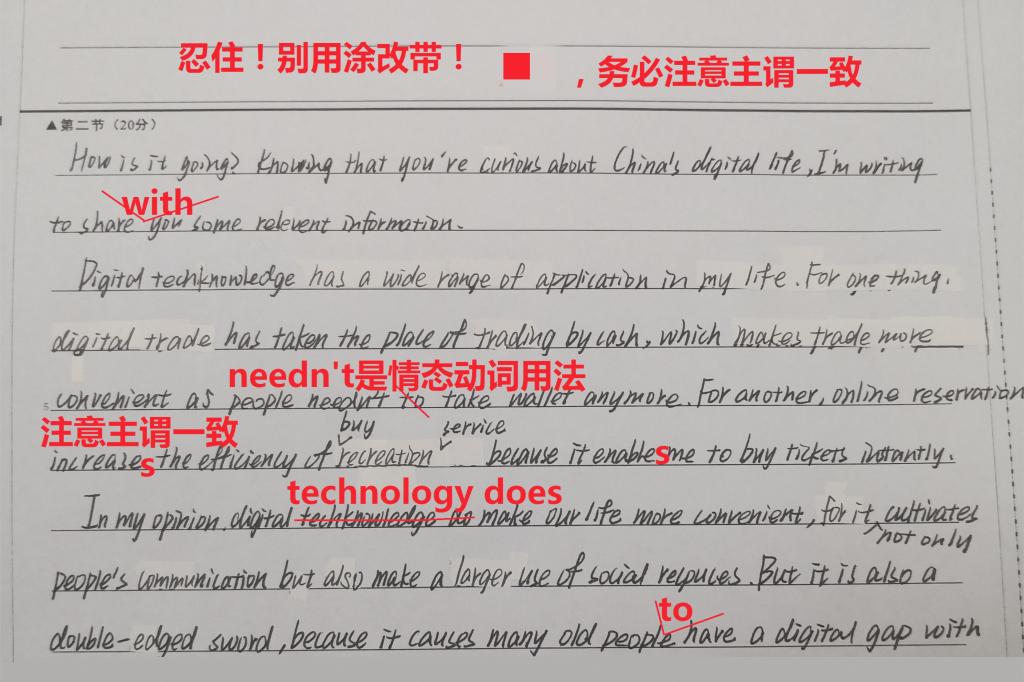 忍住！别用涂改带！ ，务必注意主谓一致
▲第二节（20分）
How is it going? Knowing that you're curious about China's digital life, I'm writing
with
to share you some relevent information.
Digital techknowledge has a wide range of application in my life. For one thing,
digital trade has taken the place of trading by cash, which makes trade more
needn't是情态动词用法
convenient as people needn't to take wallet anymore. For another, online reservation
注意主谓一致
buy service
increases the efficiency of recreation because it enables me to buy tickets instantly.
technology does
In my opinion, digital techknowledge do make our life more convenient, for it cultivates
not only
people's communication but also make a larger use of social respuces. But it is also a
to
double-edged sword, because it causes many old people have a digital gap with